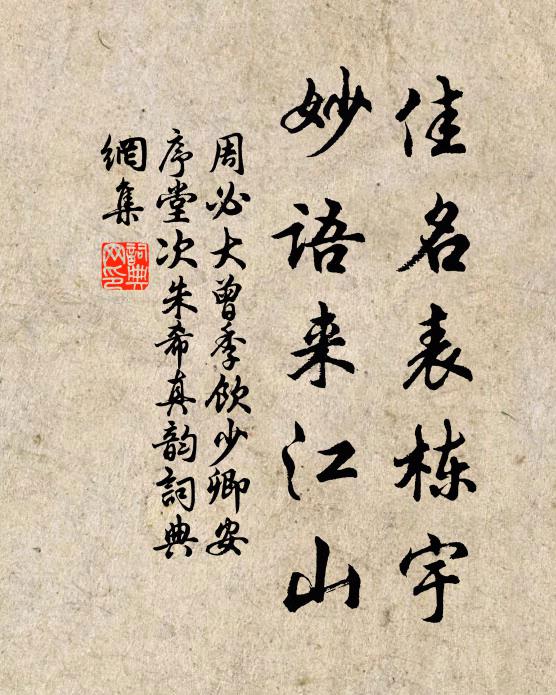 佳名表栋宇
妙语来江山
周必大曾季饮少卿安
序堂次朱希真韵词典
網集
詞典
网印